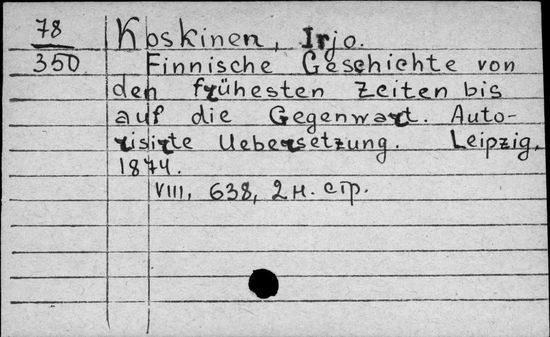 78
350
Koskinen, Irjo.
Finnische Geschichte von
den frühesten Zeiten bis
auf die Gegenwart. Auto-
risirte Uebersetzung. Leipzig,
1874.
VIII, 638, 2 н. стр.